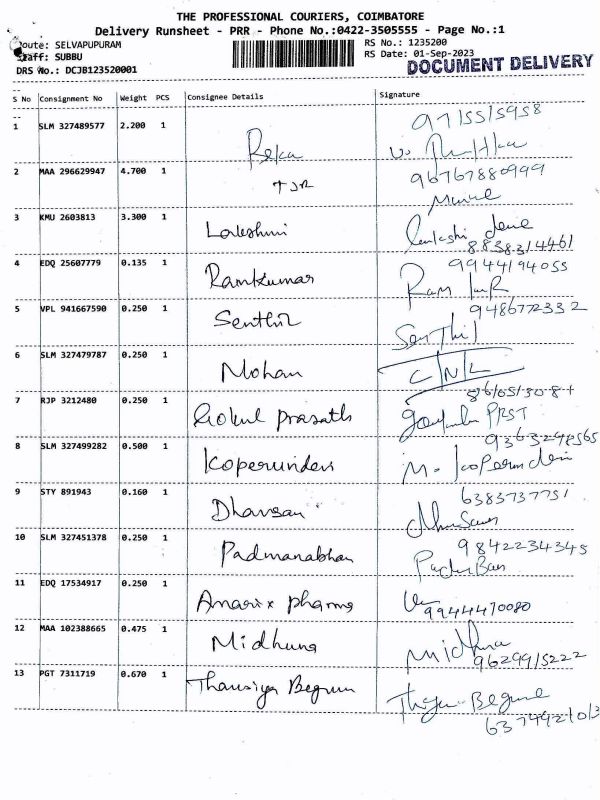 THE PROFESSIONAL COURIERS, COIMBATORE
Delivery Runsheet - PRR - Phone No.:0422-3505555 - Page No.:1
Route: SELVAPUPURAM
Staff: SUBBU
DRS No.: DCJB123520001
RS No.: 1235200
RS Date: 01-Sep-2023
DOCUMENT DELIVERY
S No Consignment No Weight PCS Consignee Details Signature
1 SLM 327489577 2.200 1 Reka 9715515958
2 MAA 296629947 4.700 1 TJR 96767880999
3 KMU 2603813 3.300 1 Lakeshmi
8838314461
4 EDQ 25607779 0.135 1 Ramkumar 9944194055
5 VPL 941667590 0.250 1 Senthil 9486772332
Senthil
6 SLM 327479787 0.250 1 Mohan C/N/L
7 RJP 3212480 0.250 1 Gokul prasath
8 SLM 327499282 0.500 1 Koperunden 9363298565
9 STY 891943 0.160 1 Dhansan 6383737751
10 SLM 327451378 0.250 1 Padmanabhan 9842234345
11 EDQ 17534917 0.250 1 pharma 9944470080
12 MAA 102388665 0.475 1 Midhuna Midhuna
9629915222
13 PGT 7311719 0.670 1 Thansiya Begum